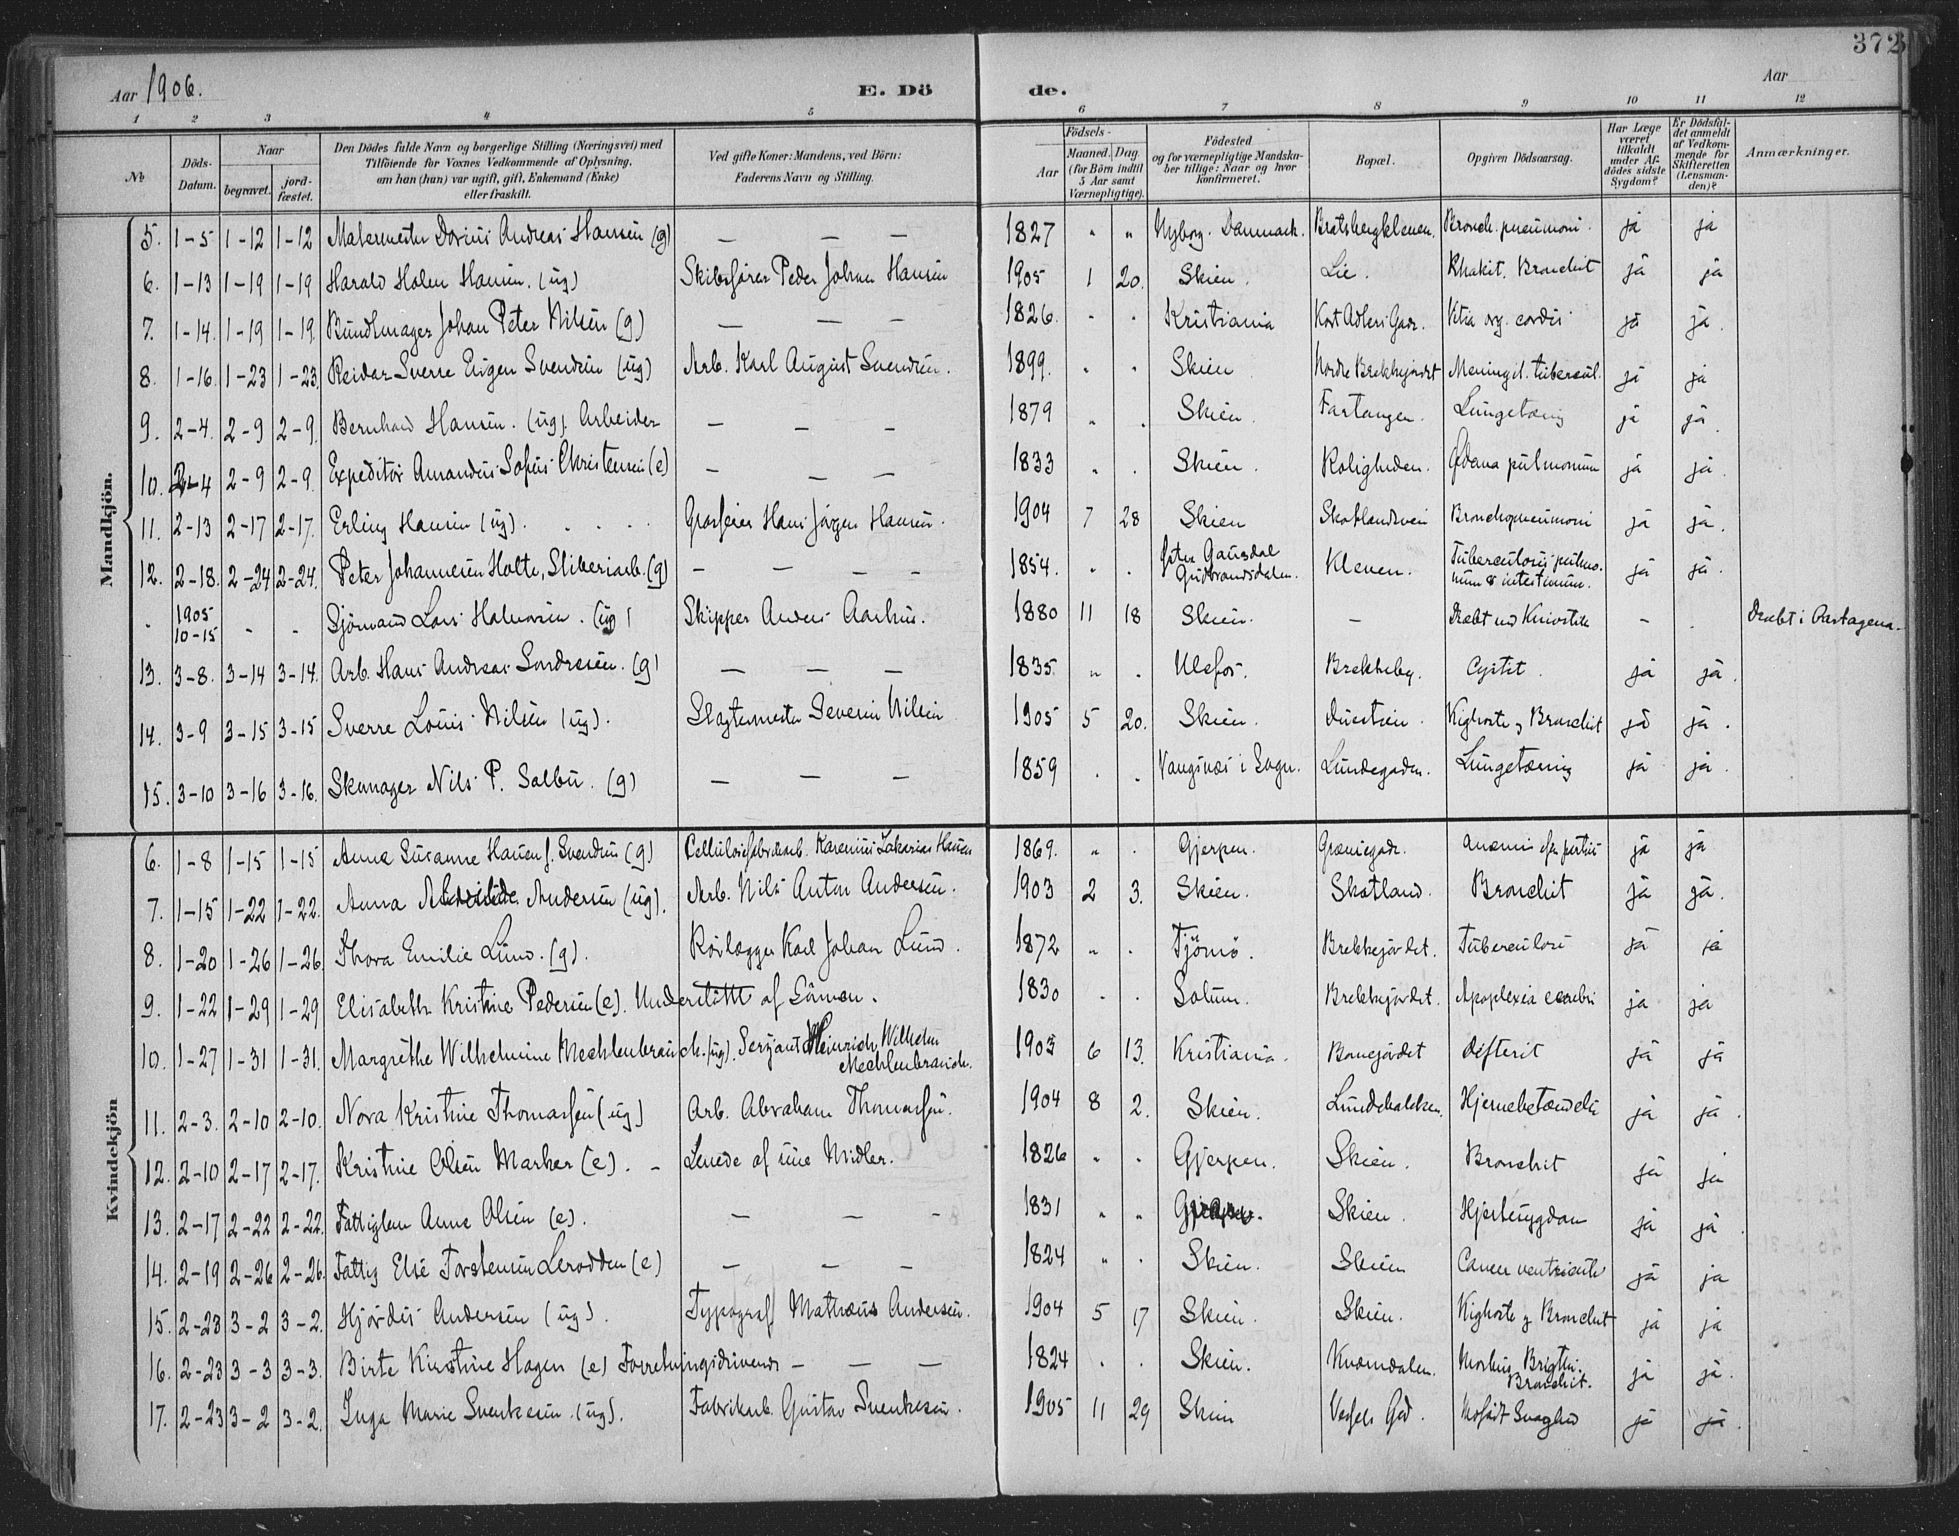 372
Aar 1906. E. Dö de. Aar
1 2 3 4 5 6 7 8 9 10 11 12
№ Döds-Datum. Naar begravet. jordfæstet. Den Dödes fulde Navn og borgerlige Stilling (Næringsvei) med Tilföiende for Voxnes Vedkommende af Oplysning, om han (hun) var ugift, gift, Enkemand (Enke) eller fraskilt. Ved gifte Koner: Mandens, ved Börn: Faderens Navn og Stilling. Födsels- Aar Maaned. Dag (for Börn indtil 5 Aar samt Værnepligtige). Födested og for værnepligtige Mandskaber tillige: Naar og hvor konfirmeret. Bopæl. Opgiven Dödsaarsag. Har Læge været tilkaldt under Afdödes sidste Sygdom? Er Dödsfaldet anmeldt af Vedkommende for Skifteretten (Lensmanden)? Anmærkninger.
Mandkjön.
5. 1-5 1-12 1-12 Malermester Dorius Andreas Hansen (g) — — — 1827 " " Nyborg. Danmark. Bratsbergkleven. Bronch. pneumoni. ja ja
6. 1-13 1-19 1-19 Harald Holm Hansen. (ug) Skibsfører Peder Johan Hansen 1905 1 20. Skien. Lie. Rhakit. Bronchit ja ja
7. 1-14. 1-19 1-19. Bundtmager Johan Peter Nilsen (g) — — — 1826. " " Kristiania Kort Adlers Gade. Vitia org. cordis ja ja.
8. 1-16. 1-23 1-23. Reidar Sverre Eugen Svendsen (ug) Arb. Karl August Svendsen. 1899. " " Skien Nordre Brekkejordet Meningit. tubercul. ja ja
9. 2-4. 2-9 2-9. Bernhard Hansen. (ug). Arbeider — — — 1879 " . Skien. Fartangen. Lungetæring ja ja.
10. 2-4 2-9 2-9. Expeditör Amandus Sofus Christensen (e) — — — 1833 " . Skien. Roligheden. Ødema pulmonum ja ja.
11. 2-13 2-17 2-17. Erling Hansen (ug). Grosserer Hans Jörgen Hansen. 1904 7 28 Skien Skotlandsvei Bronchopneumoni ja ja.
12. 2-18. 2-24 2-24. Peter Johannesen Holte, Sliberiarb. (g) — — — — 1854. " . Østre Gausdal Gudbrandsdalen. Kleven. Tuberculosis pulmonum & intestinum. ja ja.
" 1905 10-15 " " Sjömand Lars Halvorsen. (ug) Skipper Anders Aarhus. 1880 11 18 Skien. — Dræbt ved Knivstik — . Dræbt i Cartagena.
13. 3-8. 3-14 3-14. Arb. Hans Andreas Sondresen. (g) — — — 1835 " . Ulefos. Brekkeby. Cystit. ja ja.
14. 3-9 3-15 3-15 Sverre Louis Nilsen (ug). Slagtermester Severin Nilsen 1905 5 20. Skien. Kighoste & Bronchit ja ja.
15. 3-10 3-16 3-16. Skomager Nils P. Salbu. (g) — — — 1859 . . Vangsnæs i Sogn. Lundegaden. Lungetæring ja ja.
Kvindekjön
6. 1-8 1-15 1-15 Anna Susanne Hansen f. Svendsen (g) Cellulosefabrikarb. Karenius Zakarias Hansen 1869. " . Gjerpen. Grönnegade. Anæmi efter partus ja ja
7. 1-15 1-22 1-22. Anna Andersen (ug). Arb. Nils Anton Andersen. 1903 2 3. Skien. Skotland. Bronchit ja ja.
8. 1-20 1-26 1-26. Thora Emilie Lund. (g). Rörlægger Karl Johan Lund. 1872 " . Tjömö. Brekkejordet. Tuberculose ja ja
9. 1-22 1-29 1-29 Elisabeth Kristine Pedersen (e). Understöttet af Sönnen. 1830 . . Solum. Brekkejordet. Apoplexia cerebri ja ja
10. 1-27 1-31 1-31. Margrethe Wilhelmine Mechlenbrauck (ug). Serjant Heinrich Wilhelm Mechlenbrauck. 1903 6 13. Kristiania. Bomejordet Difterit ja ja
11. 2-3. 2-10 2-10. Nora Kristine Thomassen (ug) Arb. Abraham Thomassen. 1904 8 2. Skien. Lundebakken. Hjernebetændelse ja ja.
12. 2-10 2-17 2-17. Kristine Olsen Marker (e). — Levede af sine Midler. 1826 " . Gjerpen. Skien. Bronchit ja ja
13. 2-17 2-22 2-22. Fattiglem Anne Olsen (e). — — - 1831 " " Gjerpen. Skien. Hjertesygdom ja ja.
14. 2-19 2-26 2-26. Fattig Else Torstensen Lerodden (e) — — — 1824 " . Skien. Skien Cancer ventriculi ja ja
15. 2-23 3-2 3-2. Hjördis Andersen (ug). Typograf Mathæus Andersen. 1904 5 17 Skien. Skien. Kighoste & Bronchit ja ja
16. 2-23 3-3 3-3. Birte Kirstine Hagen (e) Forretningsdrivende — — — 1824 . . Skien. Kværndalen. Morbus Brigthi. Bronchit. ja ja.
17. 2-23 3-2 3-2. Inga Marie Svenkesen (ug). Fabrikarb. Gustav Svenkesen. 1905 11 29 Skien Vessels Gd. Medfödt Svaghed ja ja.